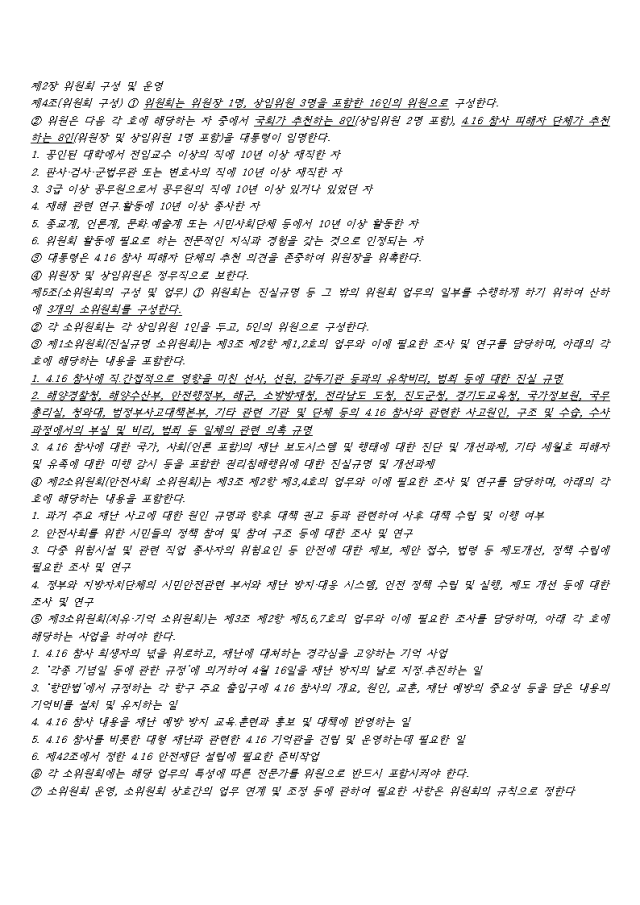 제2장 위원회 구성 및 운영
제4조(위원회 구성) ① 위원회는 위원장 1명, 상임위원 3명을 포함한 16인의 위원으로 구성한다.
② 위원은 다음 각 호에 해당하는 자 중에서 국회가 추천하는 8인(상임위원 2명 포함), 4.16 참사 피해자 단체가 추천
하는 8인(위원장 및 상임위원 1명 포함)을 대통령이 임명한다.
1. 공인된 대학에서 전임교수 이상의 직에 10년 이상 재직한 자
2. 판사·검사·군법무관 또는 변호사의 직에 10년 이상 재직한 자
3. 3급 이상 공무원으로서 공무원의 직에 10년 이상 있거나 있었던 자
4. 재해 관련 연구.활동에 10년 이상 종사한 자
5. 종교계, 언론계, 문화·예술계 또는 시민사회단체 등에서 10년 이상 활동한 자
6. 위원회 활동에 필요로 하는 전문적인 지식과 경험을 갖는 것으로 인정되는 자
③ 대통령은 4.16 참사 피해자 단체의 추천 의견을 존중하여 위원장을 위촉한다.
④ 위원장 및 상임위원은 정무직으로 보한다.
제5조(소위원회의 구성 및 업무) ① 위원회는 진실규명 등 그 밖의 위원회 업무의 일부를 수행하게 하기 위하여 산하
에 3개의 소위원회를 구성한다.
② 각 소위원회는 각 상임위원 1인을 두고, 5인의 위원으로 구성한다.
③ 제1소위원회(진실규명 소위원회)는 제3조 제2항 제1,2호의 업무와 이에 필요한 조사 및 연구를 담당하며, 아래의 각
호에 해당하는 내용을 포함한다.
1. 4.16 참사에 직.간접적으로 영향을 미친 선사, 선원, 감독기관 등과의 유착비리, 범죄 등에 대한 진실 규명
2. 해양경찰청, 해양수산부, 안전행정부, 해군, 소방방재청, 전라남도 도청, 진도군청, 경기도교육청, 국가정보원, 국무
총리실, 청와대, 범정부사고대책본부, 기타 관련 기관 및 단체 등의 4.16 참사와 관련한 사고원인, 구조 및 수습, 수사
과정에서의 부실 및 비리, 범죄 등 일체의 관련 의혹 규명
3. 4.16 참사에 대한 국가, 사회(언론 포함)의 재난 보도시스템 및 행태에 대한 진단 및 개선과제, 기타 세월호 피해자
및 유족에 대한 미행 감시 등을 포함한 권리침해행위에 대한 진실규명 및 개선과제
④ 제2소위원회(안전사회 소위원회)는 제3조 제2항 제3,4호의 업무와 이에 필요한 조사 및 연구를 담당하며, 아래의 각
호에 해당하는 내용을 포함한다.
1. 과거 주요 재난 사고에 대한 원인 규명과 향후 대책 권고 등과 관련하여 사후 대책 수립 및 이행 여부
2. 안전사회를 위한 시민들의 정책 참여 및 참여 구조 등에 대한 조사 및 연구
3. 다중 위험시설 및 관련 직업 종사자의 위험요인 등 안전에 대한 제보, 제안 접수, 법령 등 제도개선, 정책 수립에
필요한 조사 및 연구
4. 정부와 지방자치단체의 시민안전관련 부서와 재난 방지·대응 시스템, 언전 정책 수립 및 실행, 제도 개선 등에 대한
조사 및 연구
⑤ 제3소위원회(치유·기억 소위원회)는 제3조 제2항 제5,6,7호의 업무와 이에 필요한 조사를 담당하며, 아래 각 호에
해당하는 사업을 하여야 한다.
1. 4.16 참사 희생자의 넋을 위로하고, 재난에 대처하는 경각심을 고양하는 기억 사업
2. '각종 기념일 등에 관한 규정'에 의거하여 4월 16일을 재난 방지의 날로 지정.추진하는 일
3. '항만법'에서 규정하는 각 항구 주요 출입구에 4.16 참사의 개요, 원인, 교훈, 재난 예방의 중요성 등을 담은 내용의
기억비를 설치 및 유지하는 일
4. 4.16 참사 내용을 재난 예방 방지 교육.훈련과 홍보 및 대책에 반영하는 일
5. 4.16 참사를 비롯한 대형 재난과 관련한 4.16 기억관을 건립 및 운영하는데 필요한 일
6. 제42조에서 정한 4.16 안전재단 설립에 필요한 준비작업
⑥ 각 소위원회에는 해당 업무의 특성에 따른 전문가를 위원으로 반드시 포함시켜야 한다.
⑦ 소위원회 운영, 소위원회 상호간의 업무 연계 및 조정 등에 관하여 필요한 사항은 위원회의 규칙으로 정한다